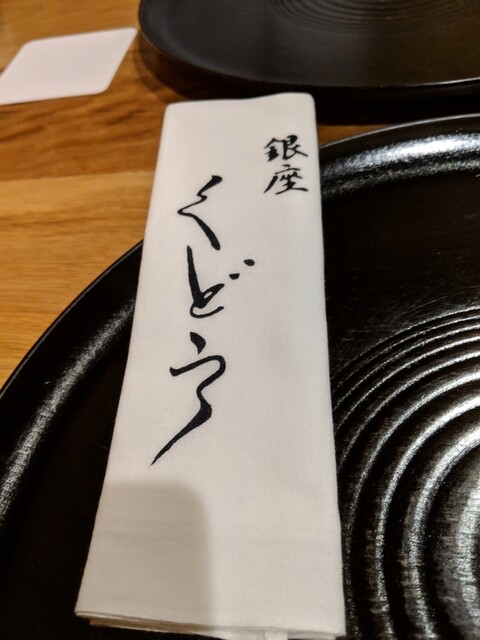 銀座
くどう